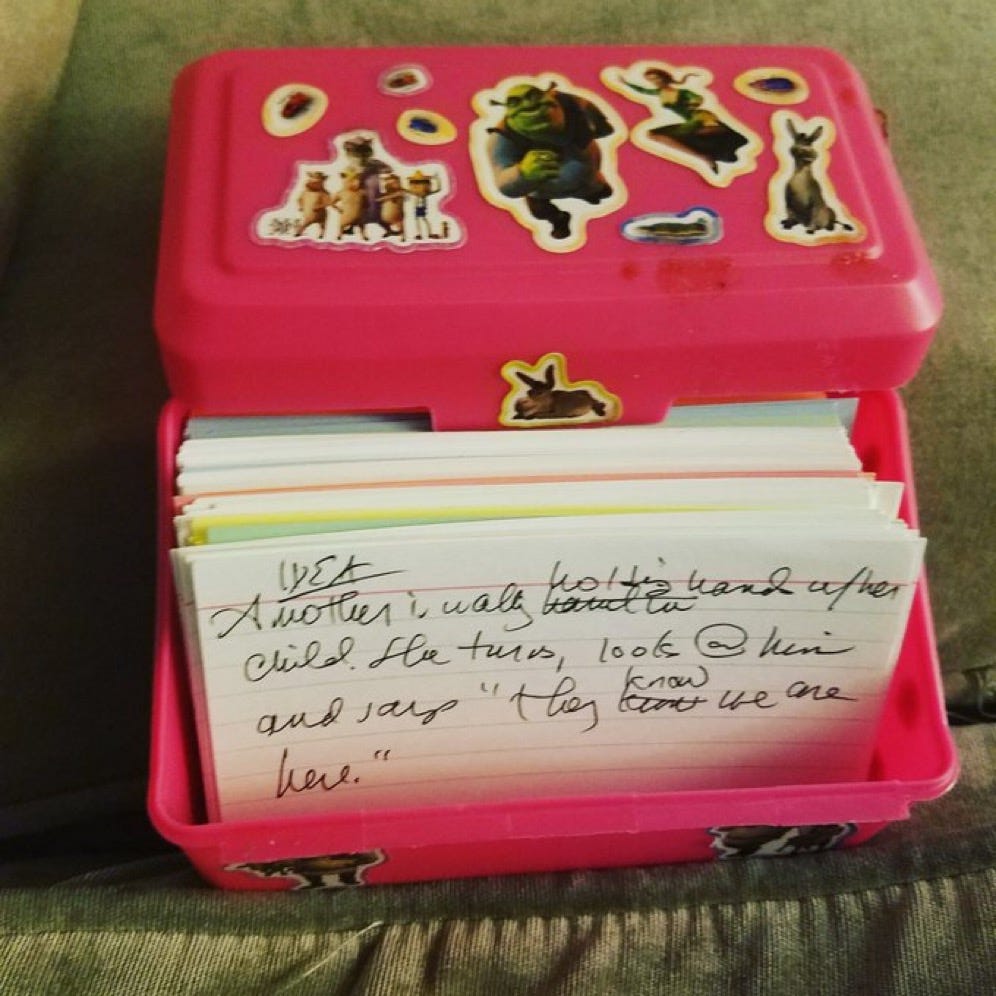 IDEA
A mother is walkg holdig hands w/her
child. She turns, looks @ him
and says "they know we are
here."